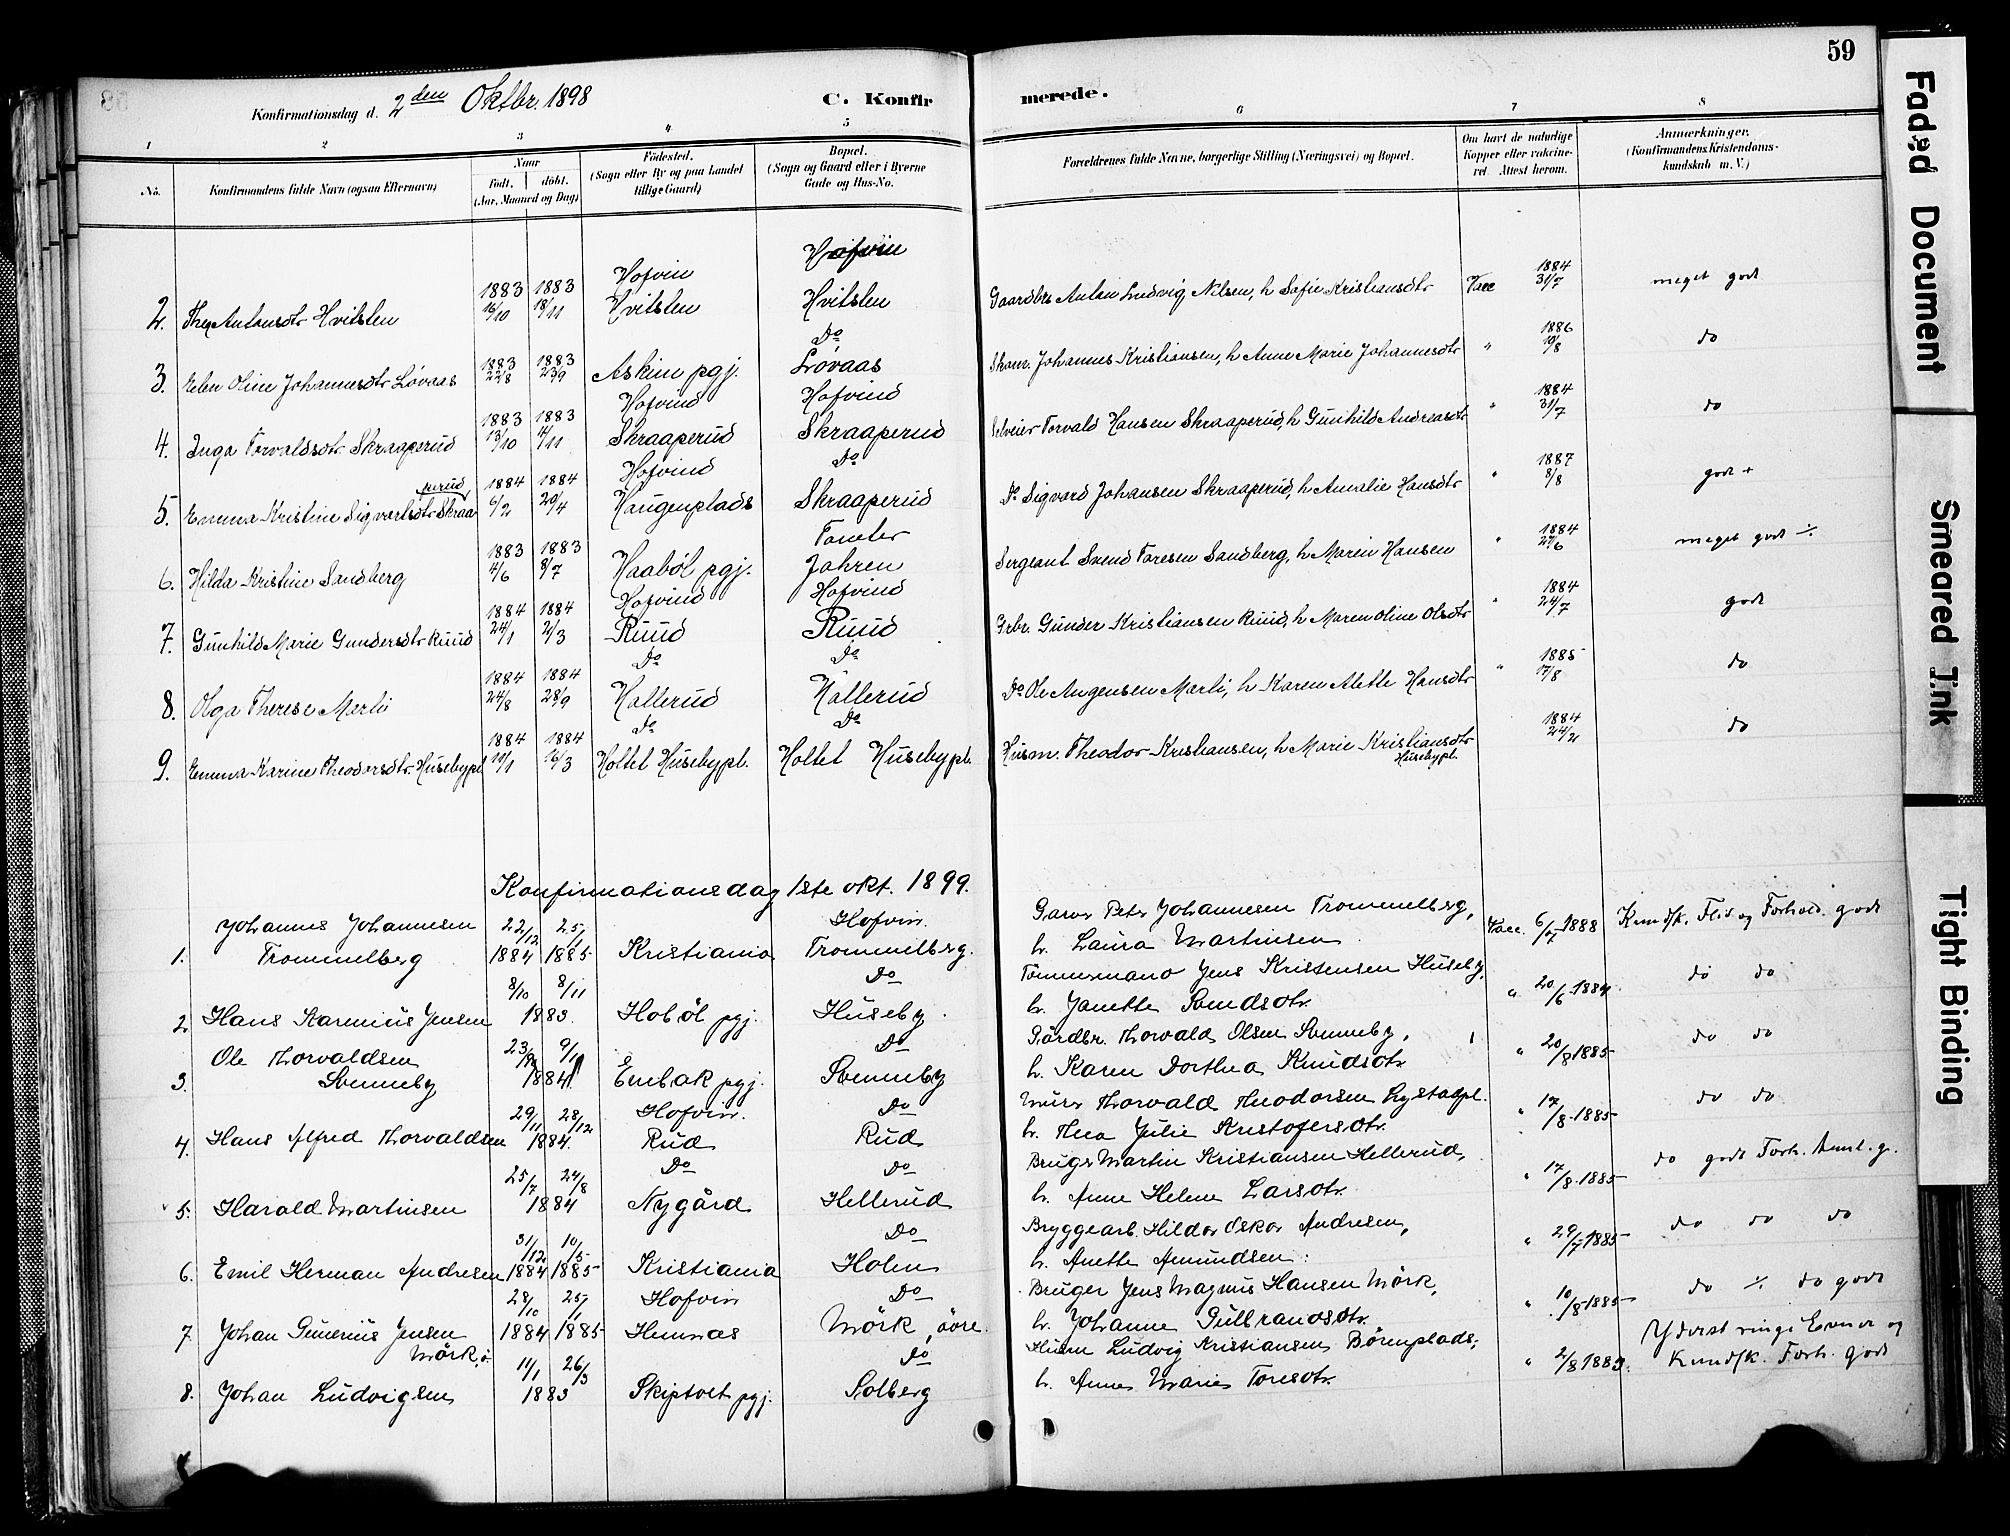 59
Konfirmationsdag d. 2den Oktbr. 1898
C. Konfir merede.
1 2 3 4 5 6 7 8
No.
Konfirmandens fulde Navn (ogsaa Efternavn)
Naar
födt. döbt.
(Aar, Maaned og Dag)
Födested.
(Sogn eller By og paa Landet
tillige Gaard)
Bopæl.
(Sogn og Gaard eller i Byerne
Gade og Hus-No.
Forældrenes fulde Navne, borgerlige Stilling (Næringsvei) og Bopæl.
Om havt de naturlige
Kopper eller vakcine-
ret Attest herom.
Anmærkninger.
(Konfirmandens Kristendoms-
kundskab m. V.)
Hofvin Hofvin
2. Thea Antonsdtr Hvitsten 1883 16/10 1883 18/11 Hvitsten Hvitsten Gaardbr. Anton Ludvig Nilsen, h Sofie Kristiansdtr Vacc 1884 31/7 meget godt
Do
3. Elen Oline Johannesdtr Lövaas 1883 22/8 1883 23/9 Askim pgj. Lövaas Skom. Johannes Kristiansen, h Anne Marie Johannesdtr " 1886 19/8 do
Hofvind Hofvind
4. Inga Torvaldsdtr. Skraaperud 1883 13/10 1883 4/11 Skraaperud Skraaperud Selveier Torvald Hansen Skraaperud, h Gunhild Andreasdtr " 1884 31/7 do
Hofvind Do
5. Emma Kristine Sigvartsdtr Skraaperud 1884 6/2 1884 20/4 Haugenplads Skraaperud Do Sigvard Johansen Skraaperud, h Amalie Hansdtr " 1887 8/8 godt +
Tomter
6. Hilda Kristine Sandberg 1883 4/6 1883 8/7 Haaböl pgj. Jahren Sergeant Svend Toresen Sandberg, h Maren Hansen " 1884 27/6 meget godt ÷
Hofvind Hofvind
7. Gunhild Marie Gundersdtr Ruud 1884 24/1 1884 2/3 Ruud Ruud Grbr. Gunder Kristiansen Ruud, h Maren Oline Olsdtr " 1884 24/7 godt
Do Do
8. Olga Therese Mærli 1884 24/8 1884 28/9 Hallerud Hallerud Do Ole Augensen Mærli, h Karen Alette Hansdtr " 1885 17/8 do
Do Do
9. Emma Karine Theodorsdtr. Husebypl 1884 19/1 1884 16/3 Holtet Husebypl. Holtet Husebypl. Husm. Theodor Kristiansen, h Marie Kristiansdtr Husebypl. 1884 24/2 do
Konfirmationsdag 1ste okt. 1899.
Johannes Johannesen 22/12 25/1 Hofvin. Petr Johannesen Trommelberg, Vacc. 6/7 1888 Kundsk. Flid og Forhold. godt
1. Trommelberg 1884 1885 Kristiania Trommelberg. h. Laura Martinsen
8/10 8/11 Do Tömmermand Jens Kristensen Huseby,
2 Hans Karenius Jensen 1883. Hoböl pgj. Huseby. h. Janette Svendsdtr. " 20/6 1884 do do
Ole Thorvaldsen 23/ 9/1 Do Gårdbr. Thorvald Olsen Sonneby,
3. Sonneby 1884 Enebak pgj. Sonneby h. Karen Dorthea Knudsdtr. " 20/8 1885 do do
29/11 28/12 Hofvin. Do Murer Thorvald Theodorsen Lystadpl.
4. Hans Alfred Thorvaldsen 1884. Rud Rud h. Thea Julie Kristofersdtr. " 17/8 1885 do do
25/7 24/8 Do Do Bruger Martin Kristiansen Hellerud,
5. Harald Martinsen 1884 Nygård Hellerud h. Anne Helene Larsdtr. " 17/8 1885 do godt Forh.
31/12 10/5 Do Bryggearb. Hildor Oskar Andresen,
6. Emil Herman Andresen 1884 1885 Kristiania Holen h. Anette Amundsen. " 29/7 1885 do do do
28/10 25/1 Hofvin Do Bruger Jens Magnus Hansen Mörk,
7. Johan Gunerius Jensen Mörk, ö 1884 1885 Hemnæs Mörk, övre. h. Johanne Gulbrandsdtr. " 10/8 1885 do ÷ do godt
11/1 26/3 Do Husm Ludvig Kristiansen Börnplads,
8. Johan Ludvigsen 1883 Skiptvet pgj. Solberg h. Anne Marie Toresdtr. " 2/8 1883. Yderst ringe Evner og
Kundsk. Forh. godt
Faded Document
Smeared Ink
Tight Binding